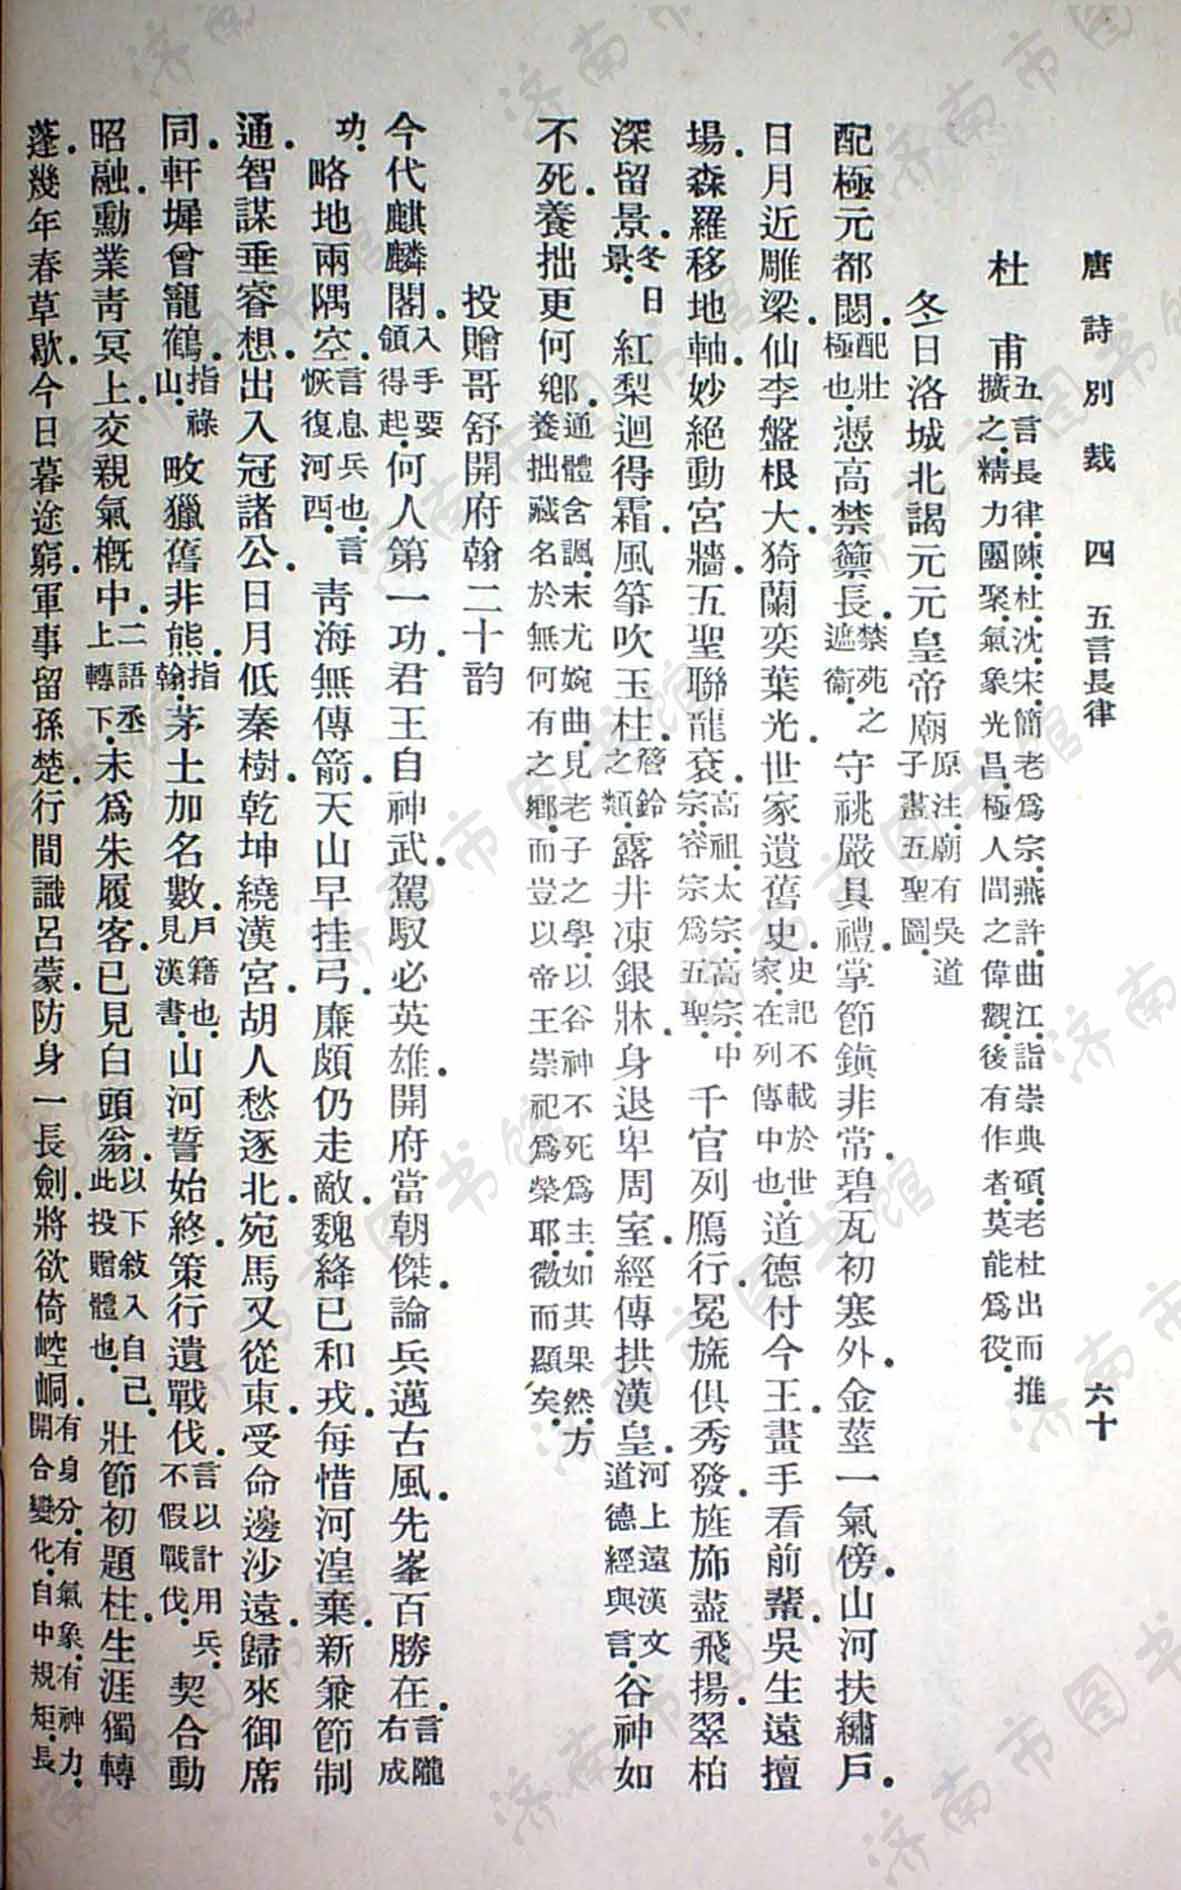 唐詩別裁　四　五言長律　六十
杜　甫　五言長律陳杜沈宋簡老爲宗燕許曲江詣崇典碩老杜出而推擴之精力團聚氣象光昌極人間之偉觀後有作者莫能爲役
冬日洛城北謁元元皇帝廟　原注廟有吳道子畫五聖圖
配極元都閟．配壯極也．憑高禁籞長．禁苑之遮衞．守祧嚴具禮．掌節鎭非常．碧瓦初寒外．金莖一氣傍．山河扶繡戶．
日月近雕梁．仙李盤根大．猗蘭奕葉光．世家遺舊史．史記不載於世家．在列傳中也．道德付今王．畫手看前輩．吳生遠擅
場．森羅移地軸．妙絕動宮牆．五聖聯龍袞．高祖．太宗．高宗．中宗．睿宗爲五聖．千官列鴈行．冕旒俱秀發．旌斾盡飛揚．翠柏
深留景．冬日景．紅梨迥得霜．風箏吹玉柱．簷鈴之類．露井凍銀牀．身退卑周室．經傳拱漢皇．河上遠漢文道德經與言．谷神如
不死．養拙更何鄕．通體含諷．末尤婉曲．見老子之學．以谷神不死爲主．如其果然．方養拙藏名於無何有之鄕．而豈以帝王崇祀爲榮耶．微而顯矣．
投贈哥舒開府翰二十韵
今代麒麟閣．入手要領得起．何人第一功．君王自神武．駕馭必英雄．開府當朝傑．論兵邁古風．先峯百勝在．言隴右成
功．略地兩隅空．言息兵也．言恢復河西．靑海無傳箭．天山早挂弓．廉頗仍走敵．魏絳已和戎．每惜河湟棄．新兼節制
通．智謀垂睿想．出入冠諸公．日月低秦樹．乾坤繞漢宮．胡人愁逐北．宛馬又從東．受命邊沙遠．歸來御席
同．軒墀曾寵鶴．指祿山．畋獵舊非熊．指翰．茅土加名數．戶籍也．見漢書．山河誓始終．策行遺戰伐．言以計用兵．不假戰伐．契合動
昭融．勳業靑冥上．交親氣槪中．二語丞上轉下．未爲朱履客．已見白頭翁．以下敍入自己．此投贈體也．壯節初題柱．生涯獨轉
蓬．幾年春草歇．今日暮途窮．軍事留孫楚．行間識呂蒙．防身一長劍．將欲倚崆峒．有身分．有氣象．有神力．開合變化．自中規矩．長